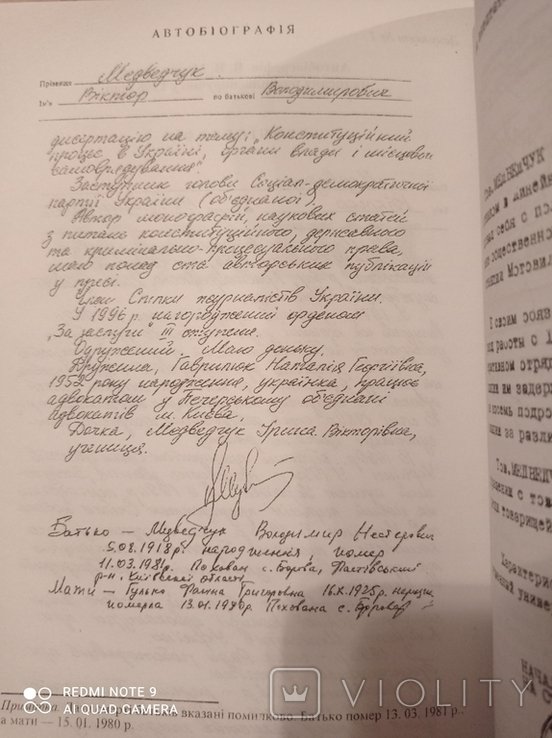 АВТОБІОГРАФІЯ
Прізвище Медведчук
Ім'я Віктор по батькові Володимирович
дисертацію на тему: „Конституційний
процес в Україні, органи влади і місцевого
самоврядування".
Заступник голови Соціал-демократичної
партії України (об'єднаної).
Автор монографій, наукових статей
з питань конституційного, державного
та кримінально-процесуального права,
маю понад ста авторських публікацій
у пресі.
Член Спілки журналістів України.
У 1996 р. нагороджений орденом
„За заслуги" III ступеня.
Одружений. Маю доньку.
Дружина, Гаврилюк Наталія Георгіївна,
1952 року народження, українка, працює
адвокатом у Печерському об'єднанні
адвокатів м. Києва.
Дочка, Медведчук Ірина Вікторівна,
учениця.
Батько – Медведчук Володимир Нестерович
5.08.1918 р. народження, помер
11.03.1981 р. Похован с. Борова, Фастівський
р-н, Київської області
Мати – Гулько Фаїна Григорівна 16.X.1925 р.
померла 13.01.1980 р. Похована с. Борова
Примітка. вказані помилково. Батько помер 13. 03. 1981 р.,
а мати — 15. 01. 1980 р.
МЕДВЕДЧУК
себя с
общественно
В своем
работы с
отряд
задер
за разли
Тов. МЕДВЕДЧ
с том
товарищей
Характерис
униве
НАЧА
REDMI NOTE 9
AI QUAD CAMERA
VIOLITY